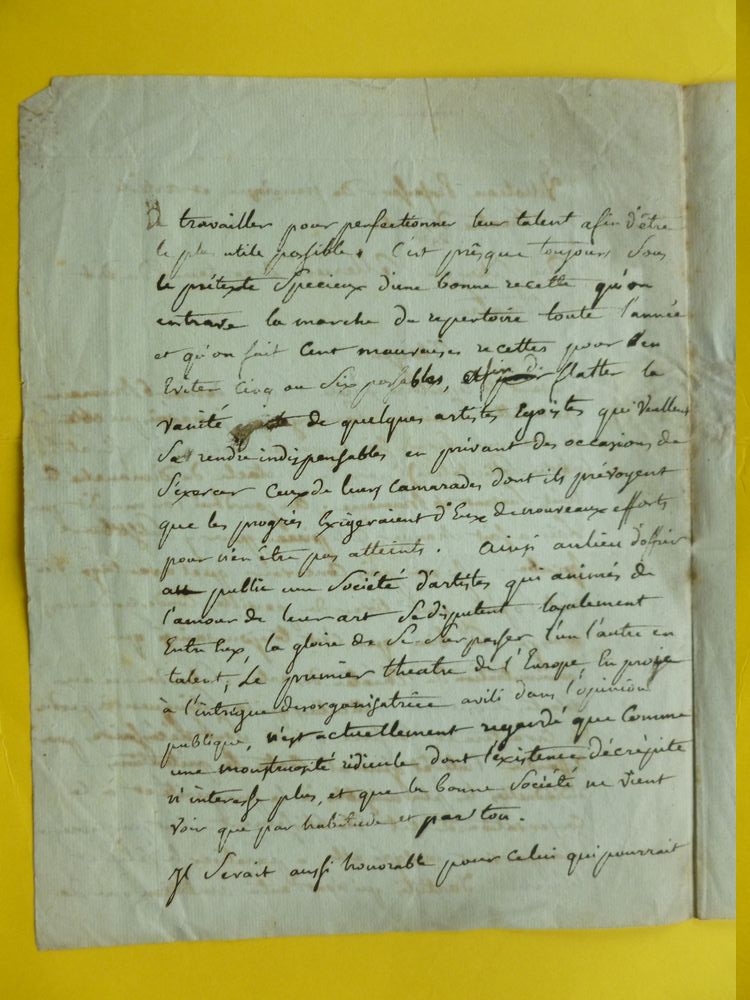 de travailler pour perfectionner leur talent afin d'être
le plus utile possible. C'est présque toujours sous
le prétexte Specieux d'une bonne recette qu'on
entrave la marche du repertoire toute l'année
et qu'on fait Cent mauvaises recettes pour d'en
Eviter Cinq ou Six passables, et flatter la
Vanité de quelques artistes Egoïstes qui Veullent
Se rendre indispensables en privant des occasions de
S'exercer Ceux de leurs Camarades dont ils prévoyent
que les progrès Exigeraient d'Eux de nouveaux efforts
pour n'en être pas atteints. Ainsi au lieu d'offrir
au public une Société d'artistes qui animés de
l'amour de leur art Se disputent loyalement
Entre Eux, la gloire de Se Surpasser l'un l'autre en
talent, Le premier theatre de l'Europe, En proye
à l'intrigue desorganisatrice avili dans l'opinion
publique, n'est actuellement regardé que Comme
une monstruosité ridicule dont l'existence décrépite
n'interesse plus, et que la bonne Société ne Vient
Voir que par habitude et par ton.
Il Serait aussi honorable pour Celui qui pourrait